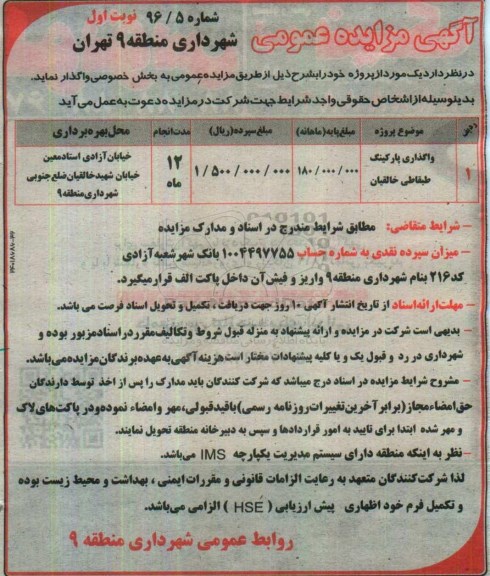 آگهی مزایده عمومی
شماره ۵ / ۹۶ نوبت اول
شهرداری منطقه ۹ تهران
در نظر دارد یک مورد از پروژه خود را بشرح ذیل از طریق مزایده عمومی به بخش خصوصی واگذار نماید.
بدینوسیله از اشخاص حقوقی واجد شرایط جهت شرکت در مزایده دعوت به عمل می آید
موضوع پروژه مبلغ پایه (ماهانه) مبلغ سپرده (ریال) مدت انجام محل بهره برداری
۱ واگذاری پارکینگ طبقاطی خالقیان ۱۸۰/۰۰۰/۰۰۰ ۱/۵۰۰/۰۰۰/۰۰۰ ۱۲ ماه خیابان آزادی استاد معین خیابان شهید خالقیان ضلع جنوبی شهرداری منطقه ۹
– شرایط متقاضی: مطابق شرایط مندرج در اسناد و مدارک مزایده
– میزان سپرده نقدی به شماره حساب ۱۰۰۴۴۹۷۷۵۵ بانک شهر شعبه آزادی
کد ۲۱۶ بنام شهرداری منطقه ۹ واریز و فیش آن داخل پاکت الف قرار میگیرد.
– مهلت ارائه اسناد از تاریخ انتشار آگهی ۱۰ روز جهت دریافت ، تکمیل و تحویل اسناد فرصت می باشد.
– بدیهی است شرکت در مزایده و ارائه پیشنهاد به منزله قبول شروط و تکالیف مقرر در اسناد مزبور بوده و
شهرداری در رد و قبول یک و یا کلیه پیشنهادات مختار است هزینه آگهی به عهده برندگان مزایده می باشد.
– مشروح شرایط مزایده در اسناد درج میباشد که شرکت کنندگان باید مدارک را پس از اخذ توسط دارندگان
حق امضاء مجاز (برابر آخرین تغییرات روزنامه رسمی) با قید قبولی، مهر و امضاء نموده و در پاکت های لاک
و مهر شده ابتدا برای تایید به امور قراردادها و سپس به دبیرخانه منطقه تحویل نمایند.
– نظر به اینکه منطقه دارای سیستم مدیریت یکپارچه IMS می باشد.
لذا شرکت کنندگان متعهد به رعایت الزامات قانونی و مقررات ایمنی ، بهداشت و محیط زیست بوده
و تکمیل فرم خود اظهاری پیش ارزیابی ( HSE ) الزامی می باشد.
روابط عمومی شهرداری منطقه ۹